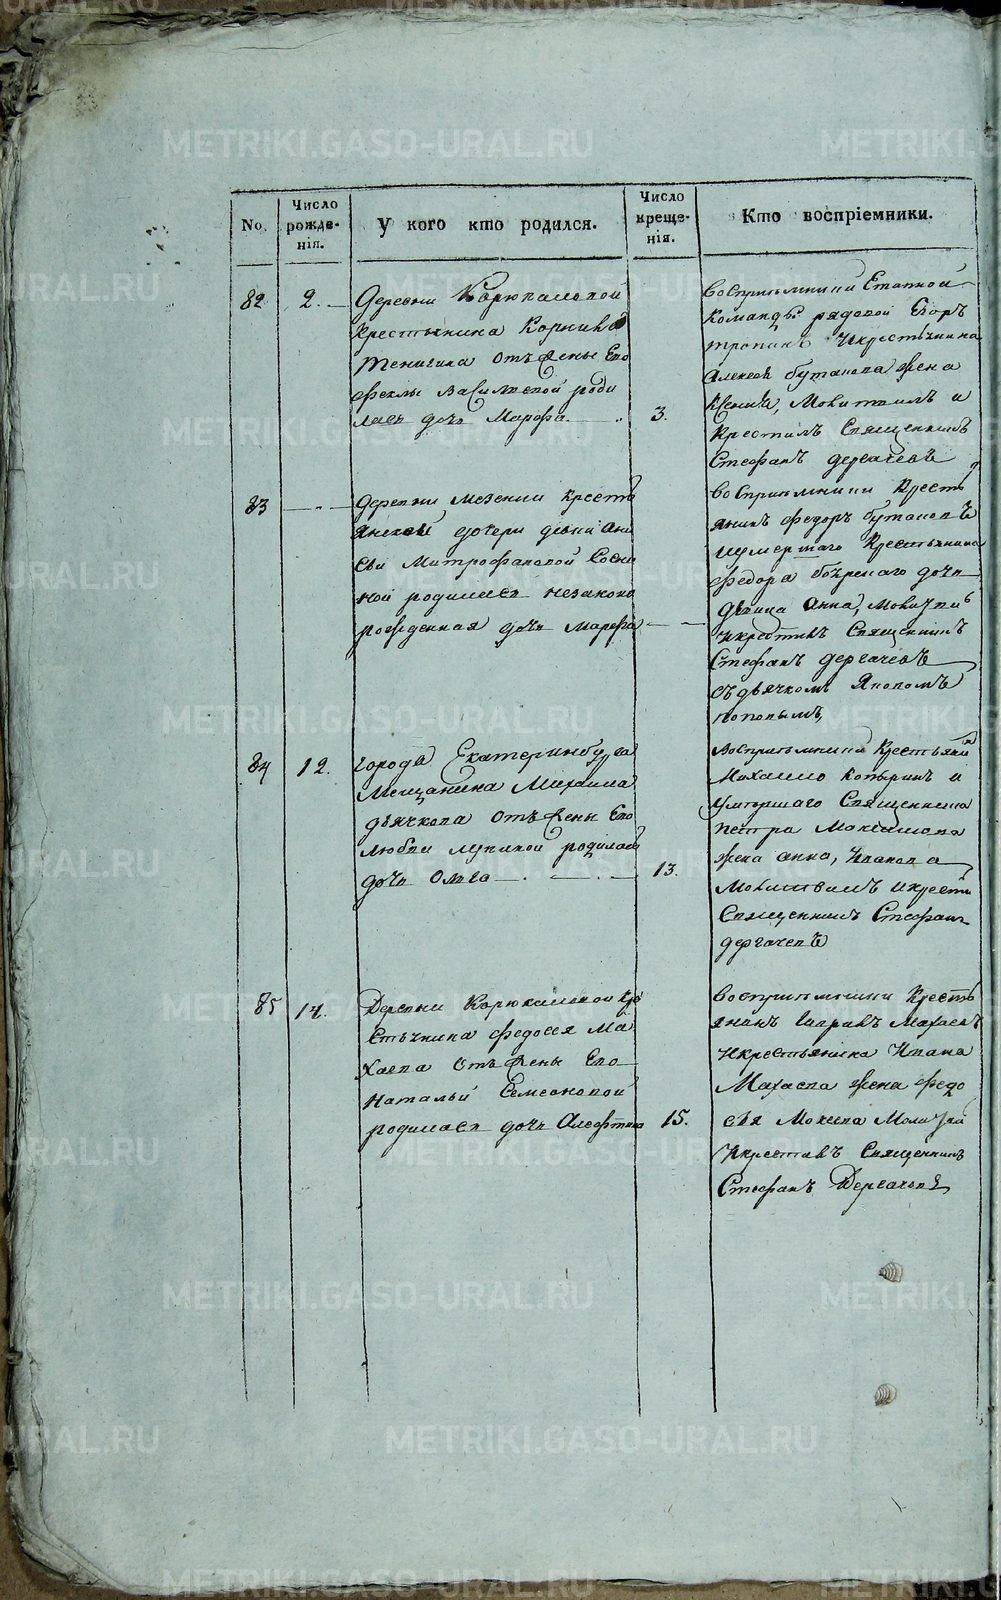 No.
Число рожде-
нія.
У кого кто родился.
Число креще-
нія.
Кто воспріемники.
82
2.
Деревни Корюкаловой
крестьянина Корнила
отъ жены Его
феклы Васильевой роди
лась дочь Марфа.
3.
воспріемники Етапной
команды рядовой Егоръ
икрестьянина
Алексея бутакова жена
Ксенія, Молитвилъ и
Крестилъ Священникъ
Стефанъ дергачевъ
83
деревни Мезенки крестъ
янской дочери девки Ани
сьи Митрофановой Сосни
ной родилась незаконо
рожденная дочь марфа
воспріемники Кресть
янинъ федоръ бутаковъ
иумершаго Крестьянина
федора дочь
девица Анна, Молитви
икрестилъ Священникъ
Стефанъ дергачевъ
съдьячкомъ Яковомъ
поповымъ,
84
12.
города Екатеринбурга
Мещанина Михаила
дьячкова отъ жены Его
любви родилась
дочь Ольга
13.
воспріемники Крестьяни
Михаило копыринъ и
умершаго Священника
петра
жена анна, Иванова
Молитвилъ икрести
Священникъ Стефанъ
дергачевъ
85
14.
Деревни Корюкаловой кре
стьянина федосея Ма
хаева отъ жены Его
Натальи Семеоновой
родилась дочь Алефтина
15.
воспріемники Кресть
янинъ Махаевъ
икрестьянина Ивана
Махаева жена федо
сья Махаева Молитви
икрестилъ Священникъ
Стефанъ Дергачевъ
METRIKI.GASO-URAL.RU